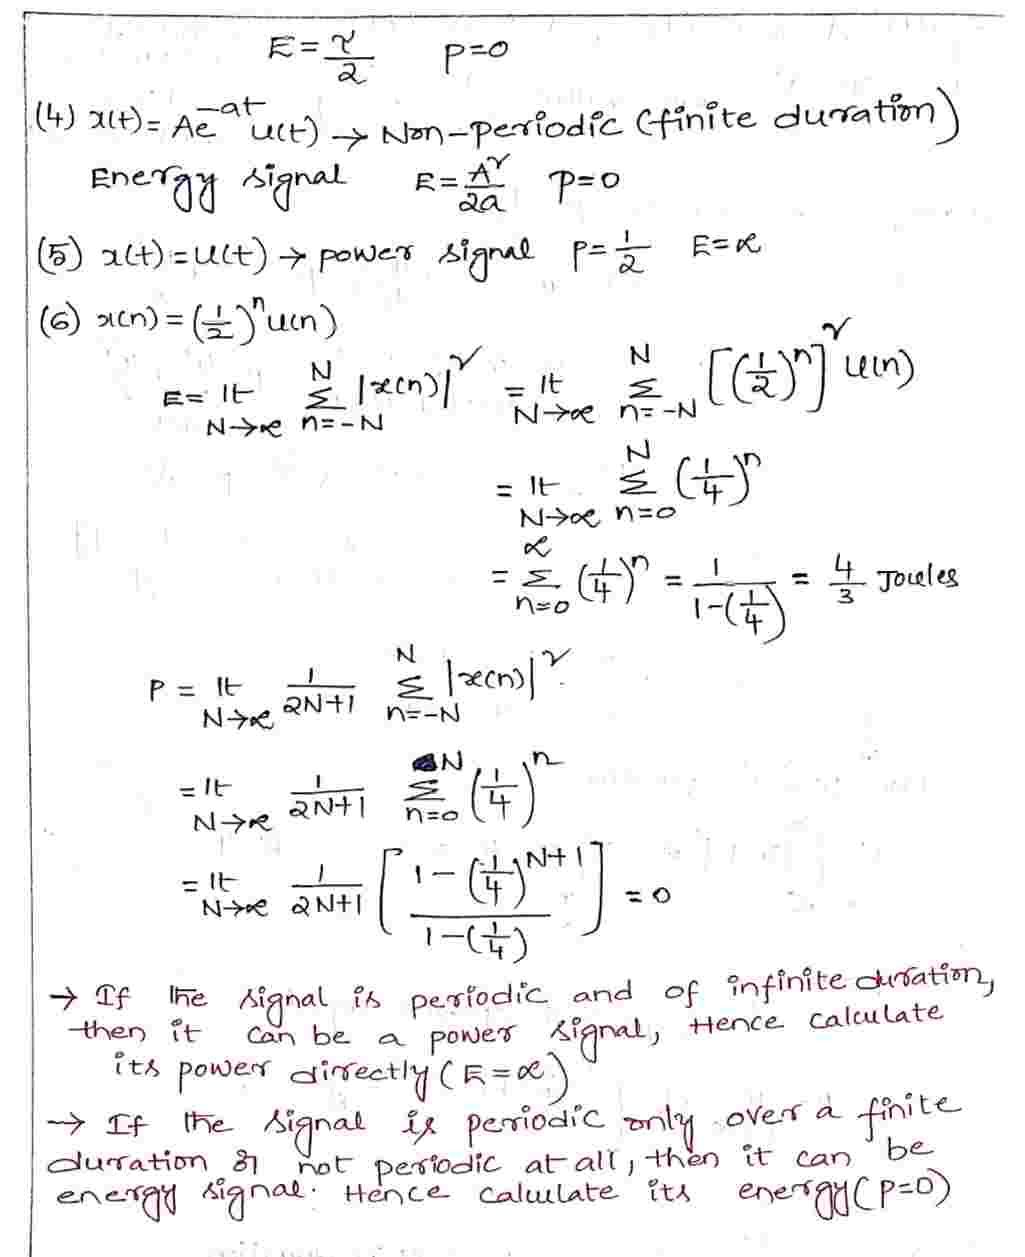 E = τ/2   P=0
(4) x(t) = Ae^-at u(t) → Non-periodic (finite duration)
Energy signal   E = A²/2a   P=0
(5) x(t) = u(t) → power signal   P = 1/2   E=∞
(6) x(n) = (1/2)^n u(n)
E = lt N→∞ Σ n=-N to N |x(n)|² = lt N→∞ Σ n=-N to N [(1/2)^n]² u(n)
= lt N→∞ Σ n=0 to N (1/4)^n
= Σ n=0 to ∞ (1/4)^n = 1/(1-(1/4)) = 4/3 Joules
P = lt N→∞ 1/(2N+1) Σ n=-N to N |x(n)|².
= lt N→∞ 1/(2N+1) Σ n=0 to N (1/4)^n
= lt N→∞ 1/(2N+1) [(1-(1/4)^(N+1))/(1-(1/4))] = 0
→ If the signal is periodic and of infinite duration,
then it can be a power signal, Hence calculate
its power directly (E=∞)
→ If the signal is periodic only over a finite
duration or not periodic at all, then it can be
energy signal. Hence calculate its energy (P=0)